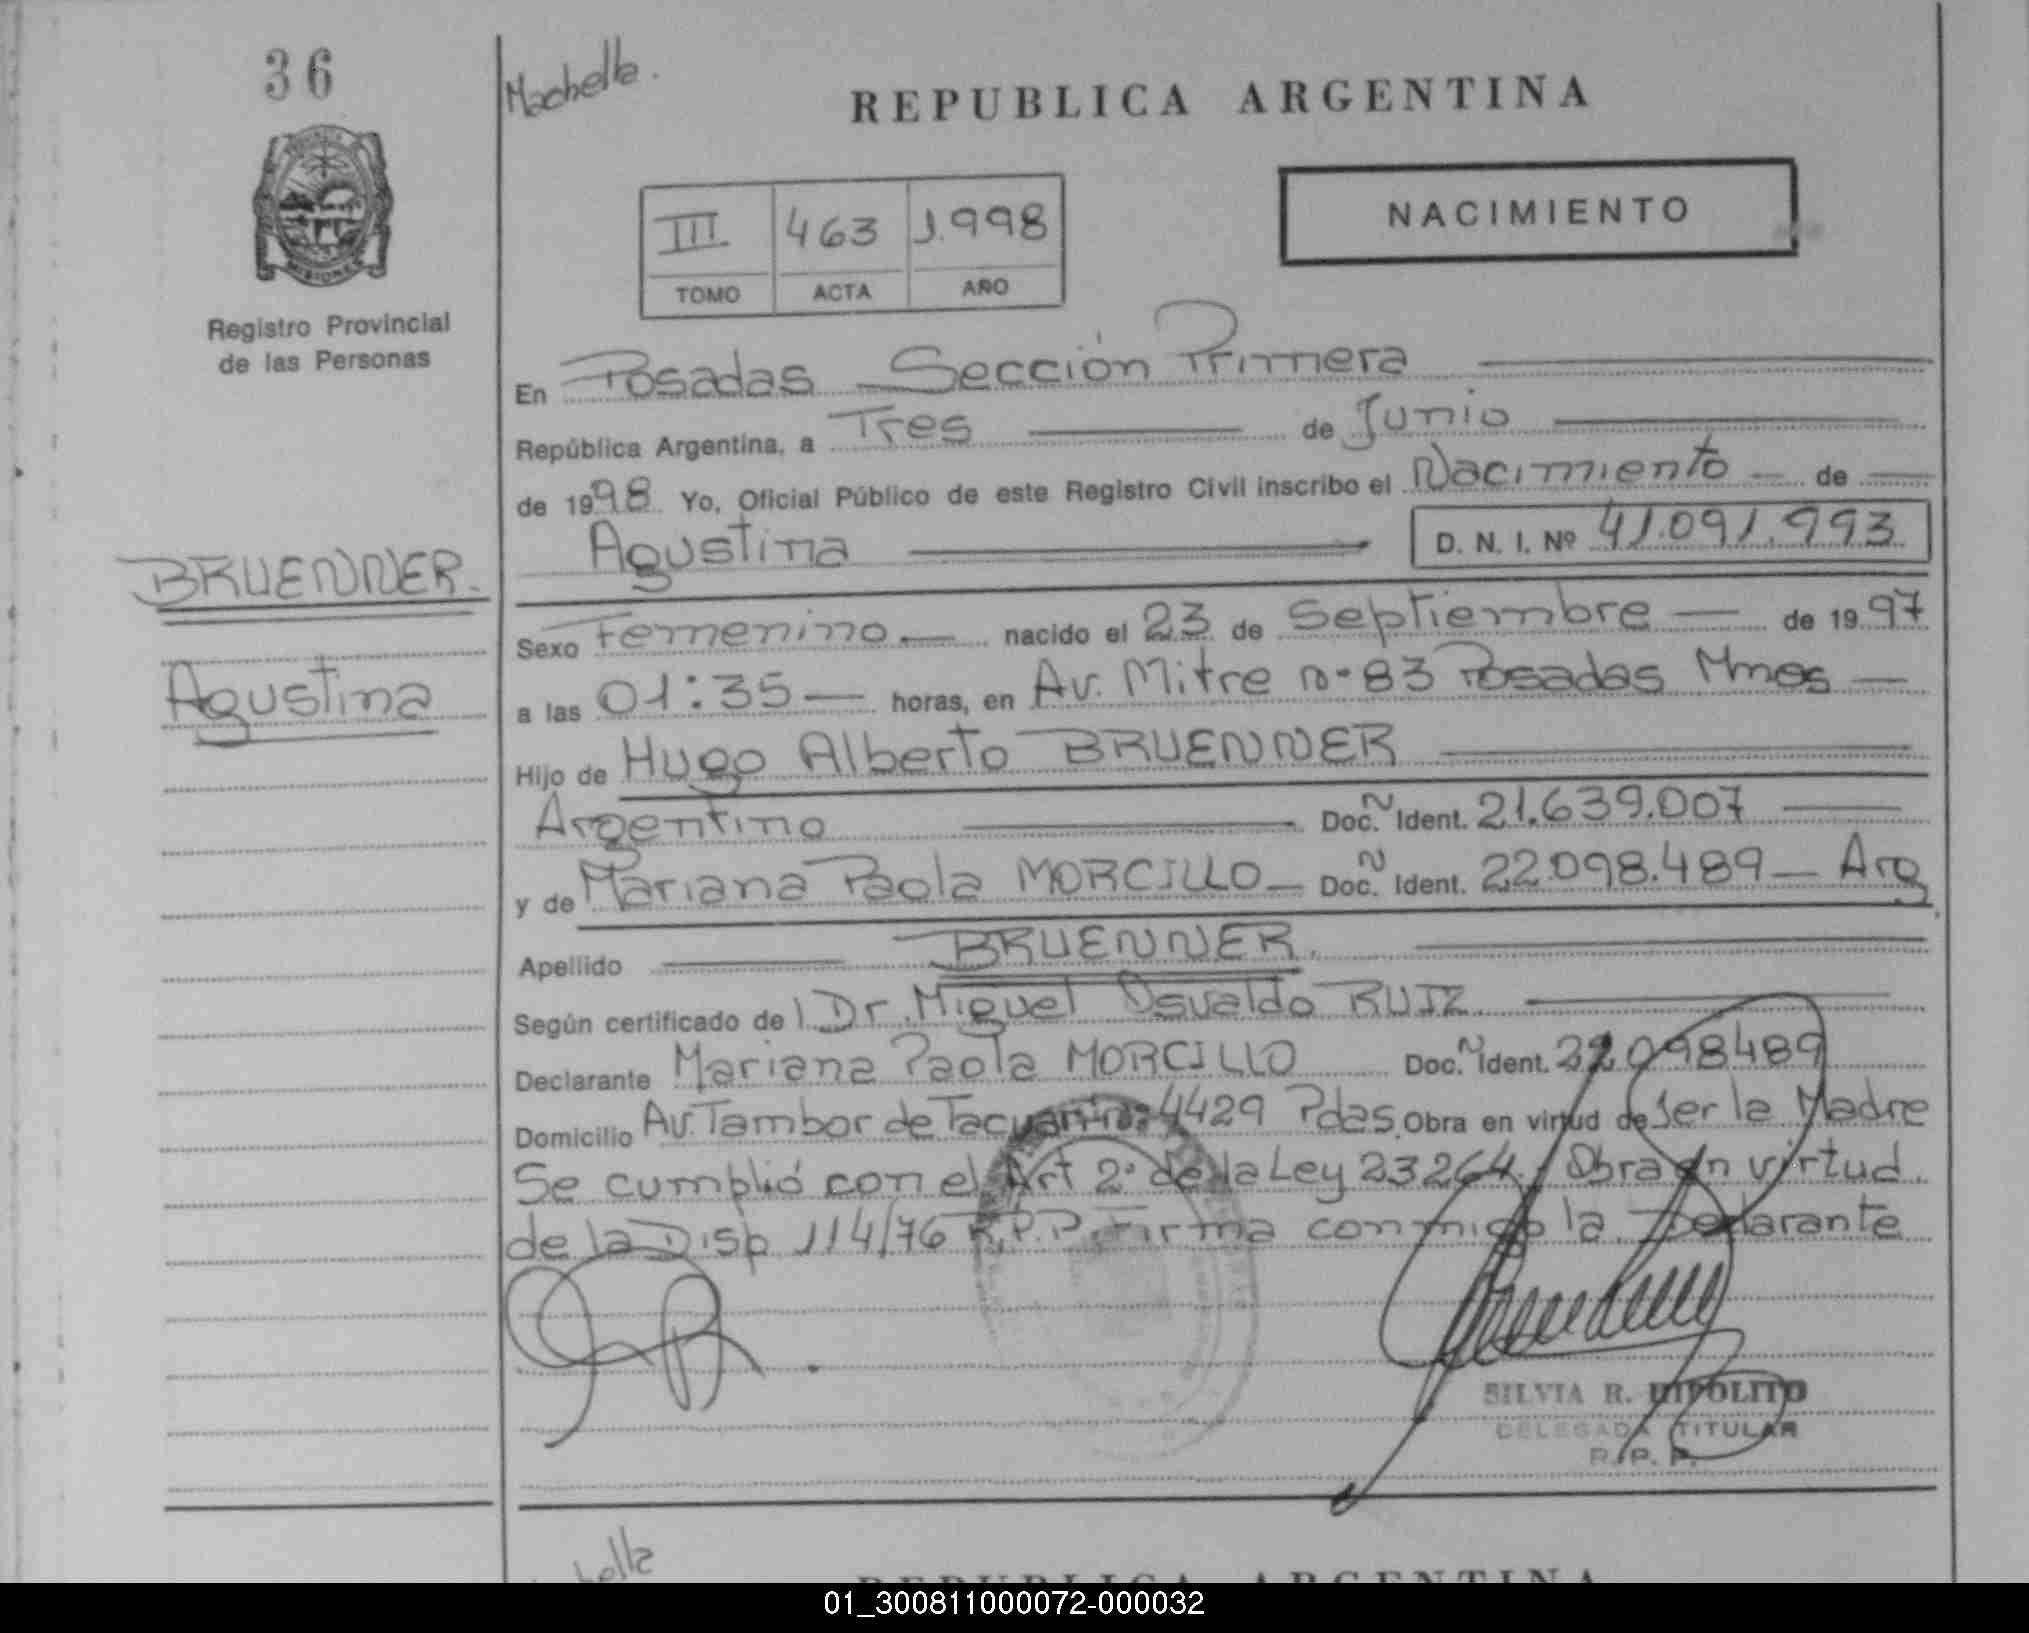 36
Machella.
REPUBLICA ARGENTINA
NACIMIENTO
III 463 1.998
TOMO ACTA AÑO
MISIONES
Registro Provincial
de las Personas
En Posadas Sección Primera
República Argentina, a Tres de Junio
de 1998 Yo, Oficial Público de este Registro Civil inscribo el Nacimiento de
Agustina D. N. I. Nº 41.091.993
BRUENNER.
Agustina
Sexo Femenino nacido el 23 de Septiembre de 1997
a las 01:35 horas, en Av. Mitre nº 83 Posadas Mnes
Hijo de Hugo Alberto BRUENNER
Argentino Doc. Ident. 21.639.007
y de Mariana Paola MORCILLO Doc. Ident. 22.098.489 Arg.
Apellido BRUENNER.
Según certificado del Dr. Miguel Osvaldo RUIZ
Declarante Mariana Paola MORCILLO Doc. Ident. 22098489
Domicilio Av. Tambor de Tacuarí nº 4429 Pdas. Obra en virtud de Ser la Madre
Se cumplió con el Art 2º de la Ley 23264. Obra en virtud
de la Disp 114/76 R.P.P. Firma conmigo la Declarante
SILVIA R. HIPOLITO
DELEGADA TITULAR
R. P. P.
REPUBLICA ARGENTINA
01_300811000072-000032